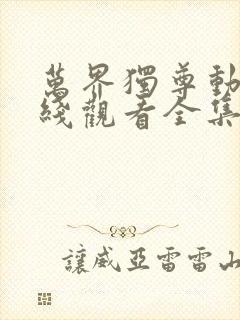 萬界獨尊動
綫觀看全集
讓威亞雷雷山